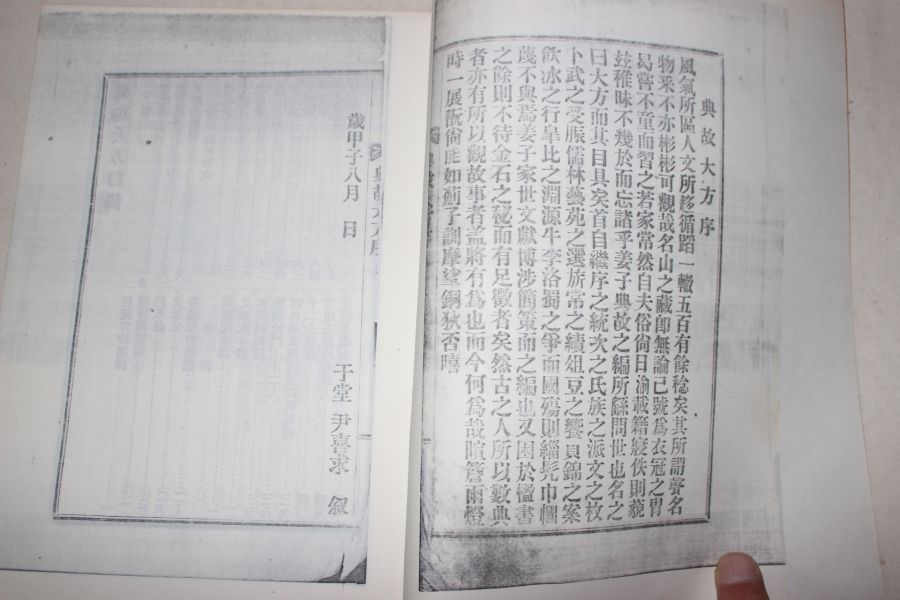 典故大方序
風氣所區人文所移循蹈一轍五百有餘稔矣其所謂聲名
物采不亦彬彬可觀哉名山之藏卽無論已號爲衣冠之冑
曷嘗不童而習之若家常然自夫俗尙日渝載籍寖佚則藐
玆稚昧不幾於而忘諸乎姜子典故之編所繇問世也名之
曰大方而其目具矣首自繼序之統次之氏族之派文之枚
卜武之受脤儒林藝苑之選旂常之績俎豆之饗貝錦之案
飮冰之行皐比之淵源牛李洛蜀之爭而國殤則緇髡巾幗
蔑不與焉姜子家世文獻博涉簡策而之編也又困於楹書
之餘則不待金石之秘而有足徵者矣然古之人所以數典
者亦有所以觀故事者盖將有爲也而今何爲哉暄簷雨燈
時一展翫尙能如薊子訓摩挲銅狄否嘻
歲甲子八月 日
于堂 尹喜求 叙